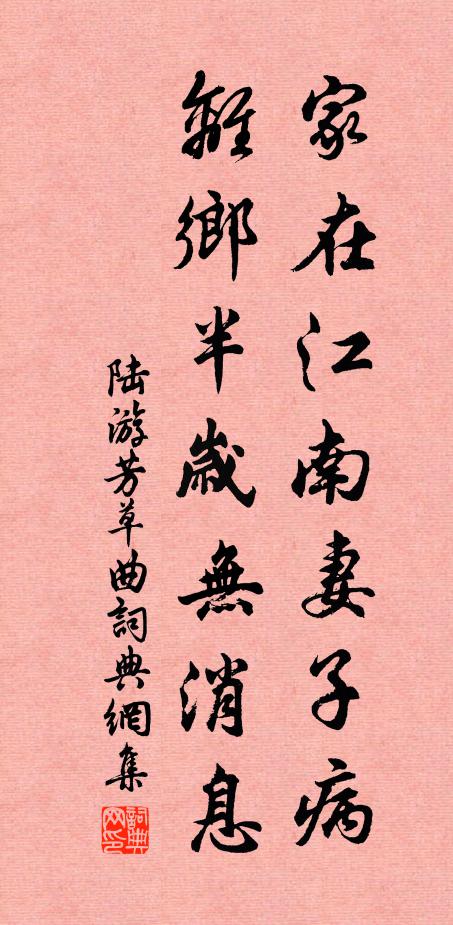 家在江南妻子病
離鄉半歲無消息
陆游芳草曲詞典網集
詞典网印